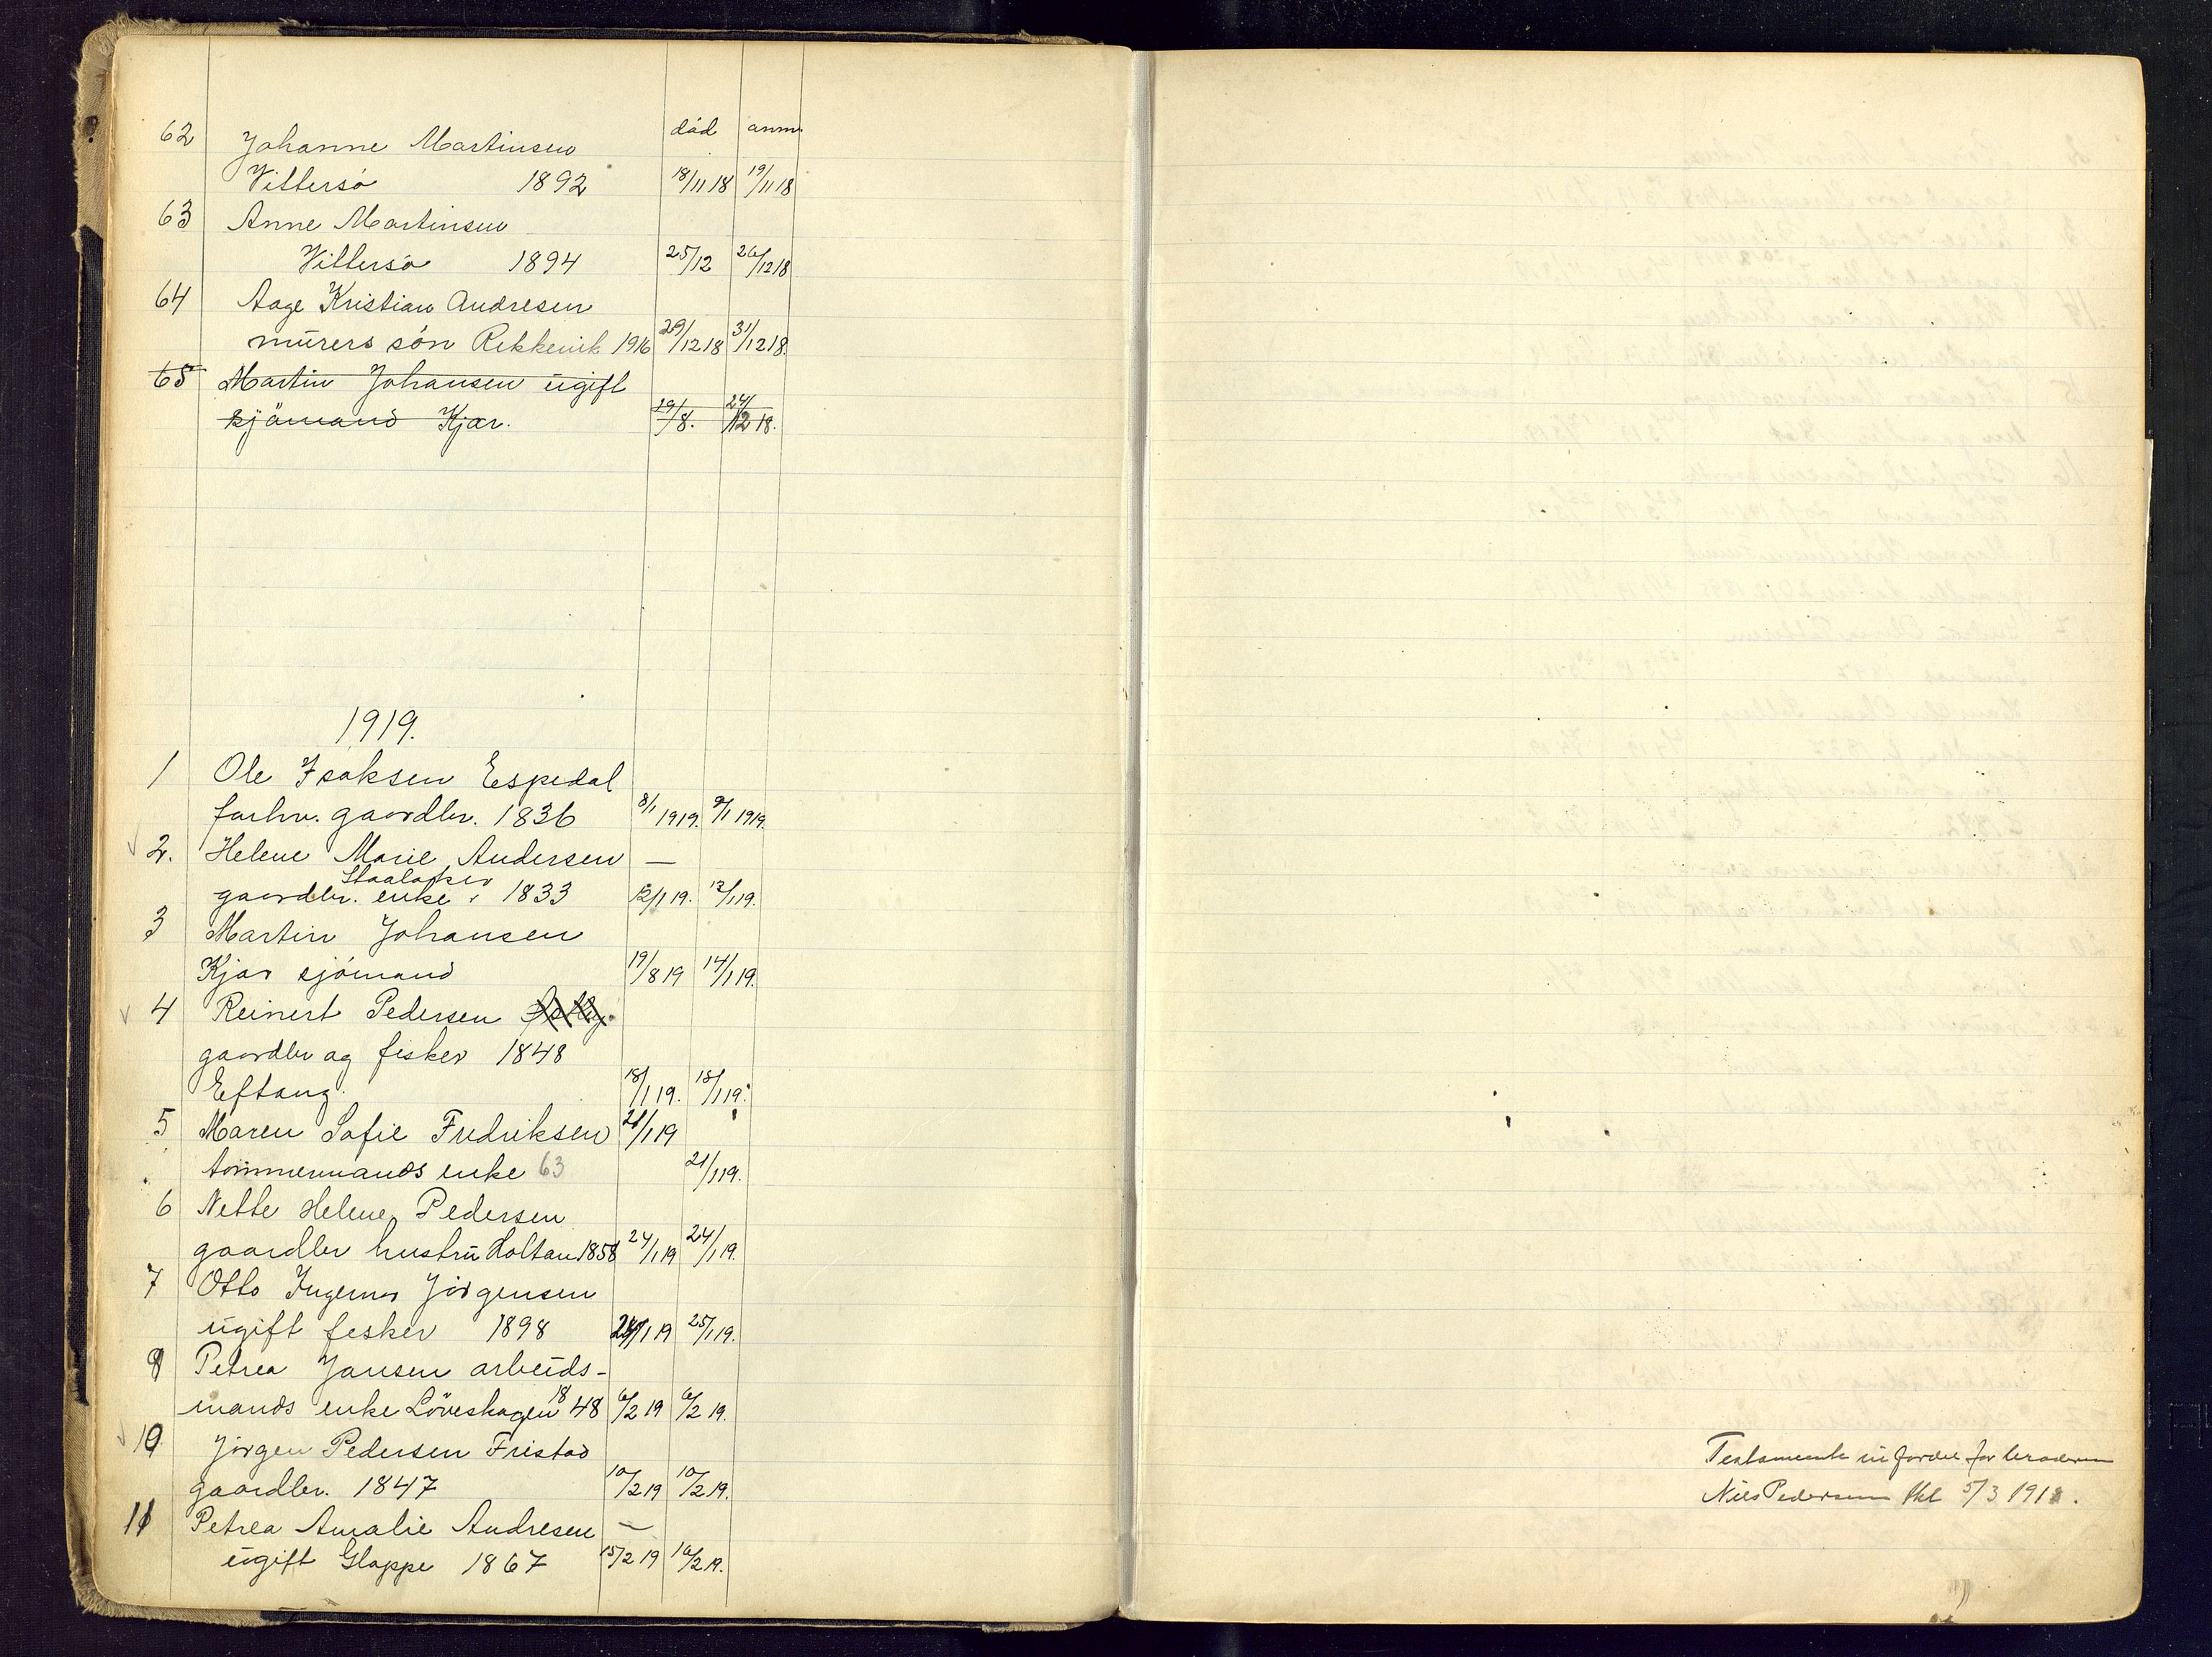 død anm
62 Johanne Martinsen
Vittersø 1892 18/11 18 19/11 18
63 Anne Martinsen
Vittersø 1894 25/12 26/12 18
64 Aage Kristian Andresen
murers søn Rekkevik 1916 29/12 18 31/12 18.
65 Martin Johansen ugift
sjömand Kjær. 19/8. 24/12 18.
1919.
1 Ole Isaksen Espedal
forhv. gaardbr. 1836 8/1 1919. 9/1 1919.
2. Helene Marie Andersen —
Staalaker
gaardbr. enke. 1833 12/1 19. 13/1 19.
3 Martin Johansen
Kjær sjømand 19/8 19 14/1 19.
4 Reinert Pedersen
gaardbr og fisker 1848
Eftang. 18/1 19. 18/1 19.
5 Maren Sofie Fredriksen 21/1 19
tømmermands enke 63 21/1 19.
6 Nette Helene Pedersen
gaardbr hustru Holtan 1858 24/1 19 24/1 19.
7 Otto Ingemar Jørgensen
ugift fisker 1898 24/1 19 25/1 19.
9 Petrea Jansen arbeids-
mands enke Löveskogen 1848 6/2 19 6/2 19.
10 Jörgen Pedersen Fristad
gaardbr. 1847 10/2 19 10/2 19.
11 Petrea Amalie Andresen —
ugift Gloppe 1867 15/2 19 16/2 19.
Testamente til fordel for broderen
Nils Pedersen tkl 5/3 1918.